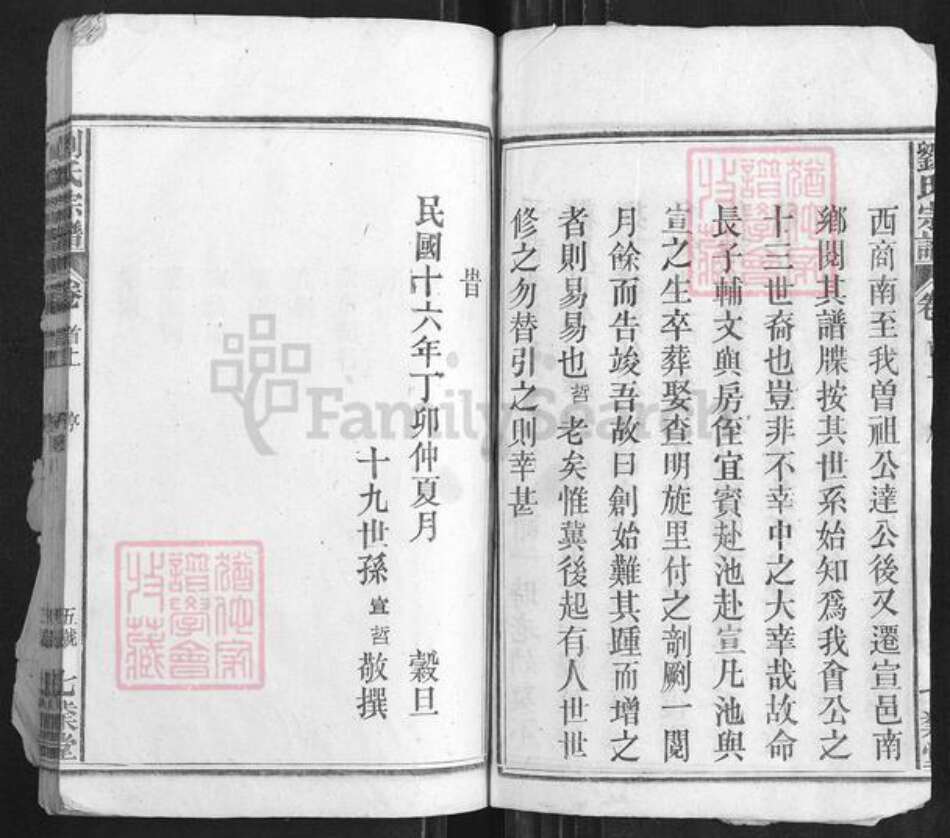 劉氏宗譜
西商南至我曾祖公達公後又遷宣邑南
鄉閱其譜牒按其世系始知爲我會公之
十三世裔也豈非不幸中之大幸哉故命
長子輔文與房侄宜賓赴池赴宣凡池與
宣之生卒葬娶查明旋里付之剞劂一閱
月餘而告竣吾故曰創始難其踵而增之
者則易易也哲老矣惟冀後起有人世世
修之勿替引之則幸甚
旹
民國十六年丁卯仲夏月 穀旦
十九世孫宣哲敬撰
劉氏宗譜
卷首上
序
五號
七業堂
猶他家譜學會收藏
猶他家譜學會收藏
FamilySearch